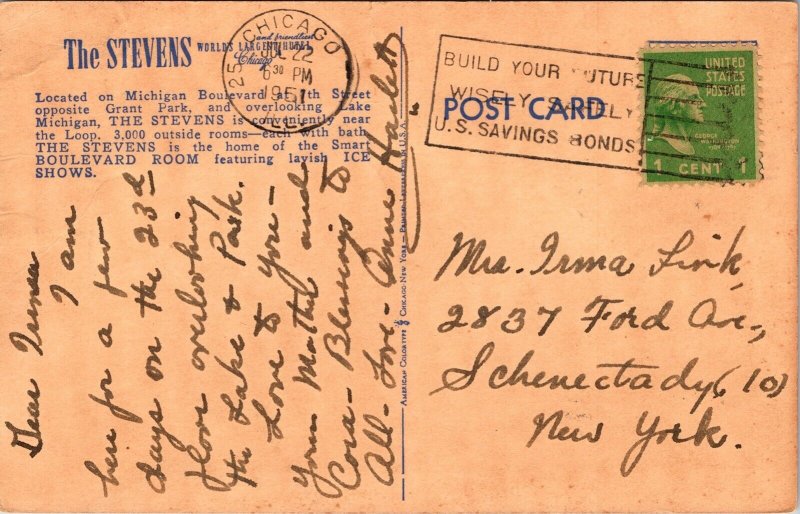 The STEVENS
WORLD'S LARGEST HOTEL
and friendliest
Chicago
Located on Michigan Boulevard at 7th Street
opposite Grant Park, and overlooking Lake
Michigan, THE STEVENS is conveniently near
the Loop. 3,000 outside rooms—each with bath
THE STEVENS is the home of the Smart
BOULEVARD ROOM featuring lavish ICE
SHOWS.
CHICAGO
JUL 22
6 30 PM
1951
BUILD YOUR FUTURE
WISELY SAFELY
U.S. SAVINGS BONDS
POST CARD
UNITED
STATES
POSTAGE
GEORGE
WASHINGTON
1 CENT 1
Dear
I am
here for a few
days on the 23rd
floor overlooking
the Lake & Park.
Love to you—
your Mother and
Cora— Blessings to
All— Love— Anne
AMERICAN COLORTYPE CHICAGO NEW YORK — PRINTED IN U.S.A.
Mrs. Irma Link,
2837 Ford Ave.,
Schenectady (10)
New York.